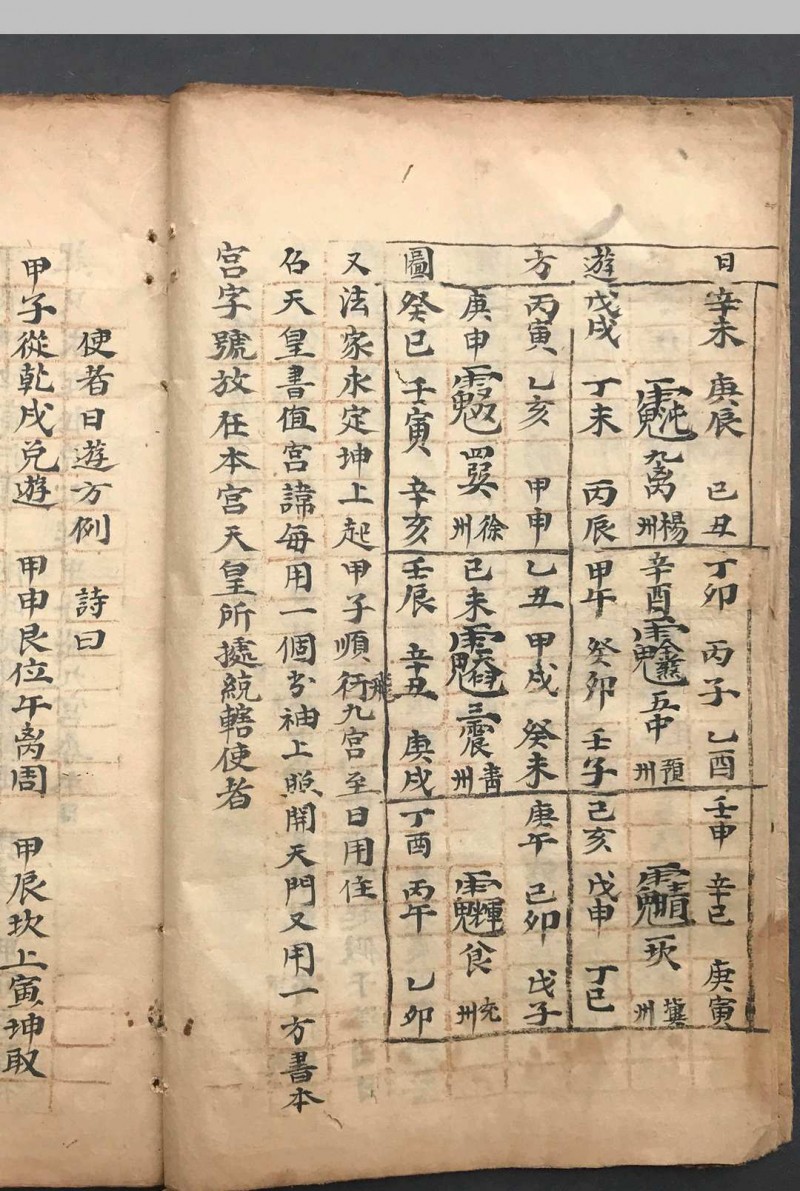 日遊方圖
辛未 庚辰 己丑
九离 楊州
戊戌 丁未 丙辰
丙寅 乙亥 甲申
庚申 四巽 徐州
癸巳 壬寅 辛亥
丁卯 丙子 乙酉
辛酉 五中 預州
甲午 癸卯 壬子
乙丑 甲戌 癸未
己未 三震 青州
壬辰 辛丑 庚戌
壬申 辛巳 庚寅
一坎 冀州
己亥 戊申 丁巳
庚午 己卯 戊子
州
丁酉 丙午 乙卯
又法家永定坤上起甲子順飛行九宮至日用住
名天皇書值宮諱每用一個於袖上照開天門又用一方書本
宮字號放在本宮天皇所據統轄使者
使者日遊方例 詩曰
甲子從乾戌兌遊 甲申艮位午离周 甲辰坎上寅坤取